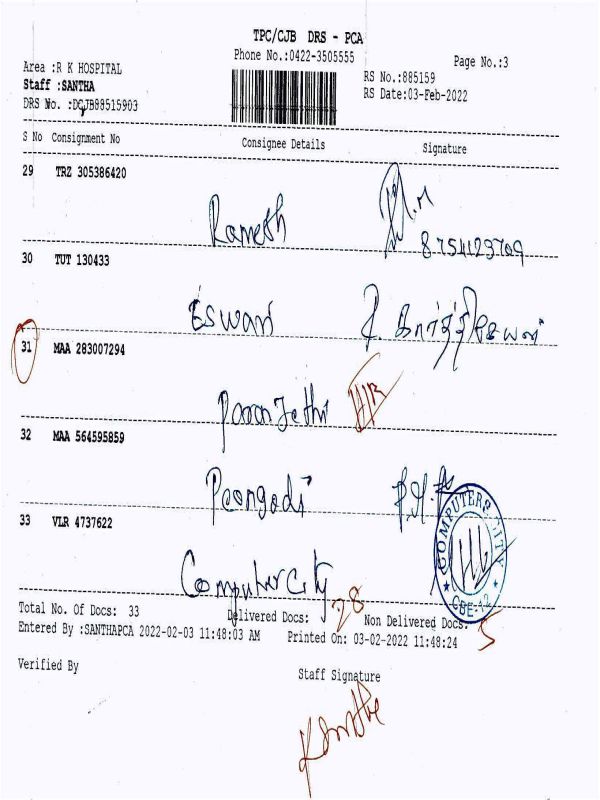 TPC/CJB DRS - PCA
Phone No.:0422-3505555
Page No.:3
Area :R K HOSPITAL
RS No.:885159
Staff :SANTHA
RS Date:03-Feb-2022
DRS No. :DCJB88515903
S No Consignment No Consignee Details Signature
29 TRZ 305386420
Ramesh
8754123709
30 TUT 130433
Eswari
31 MAA 283007294
32 MAA 564595859
Poongodi
33 VLR 4737622
COMPUTERS CITY
CBE-12
Computer City
Total No. Of Docs: 33 Delivered Docs: 28 Non Delivered Docs: 5
Entered By :SANTHAPCA 2022-02-03 11:48:03 AM Printed On: 03-02-2022 11:48:24
Verified By
Staff Signature